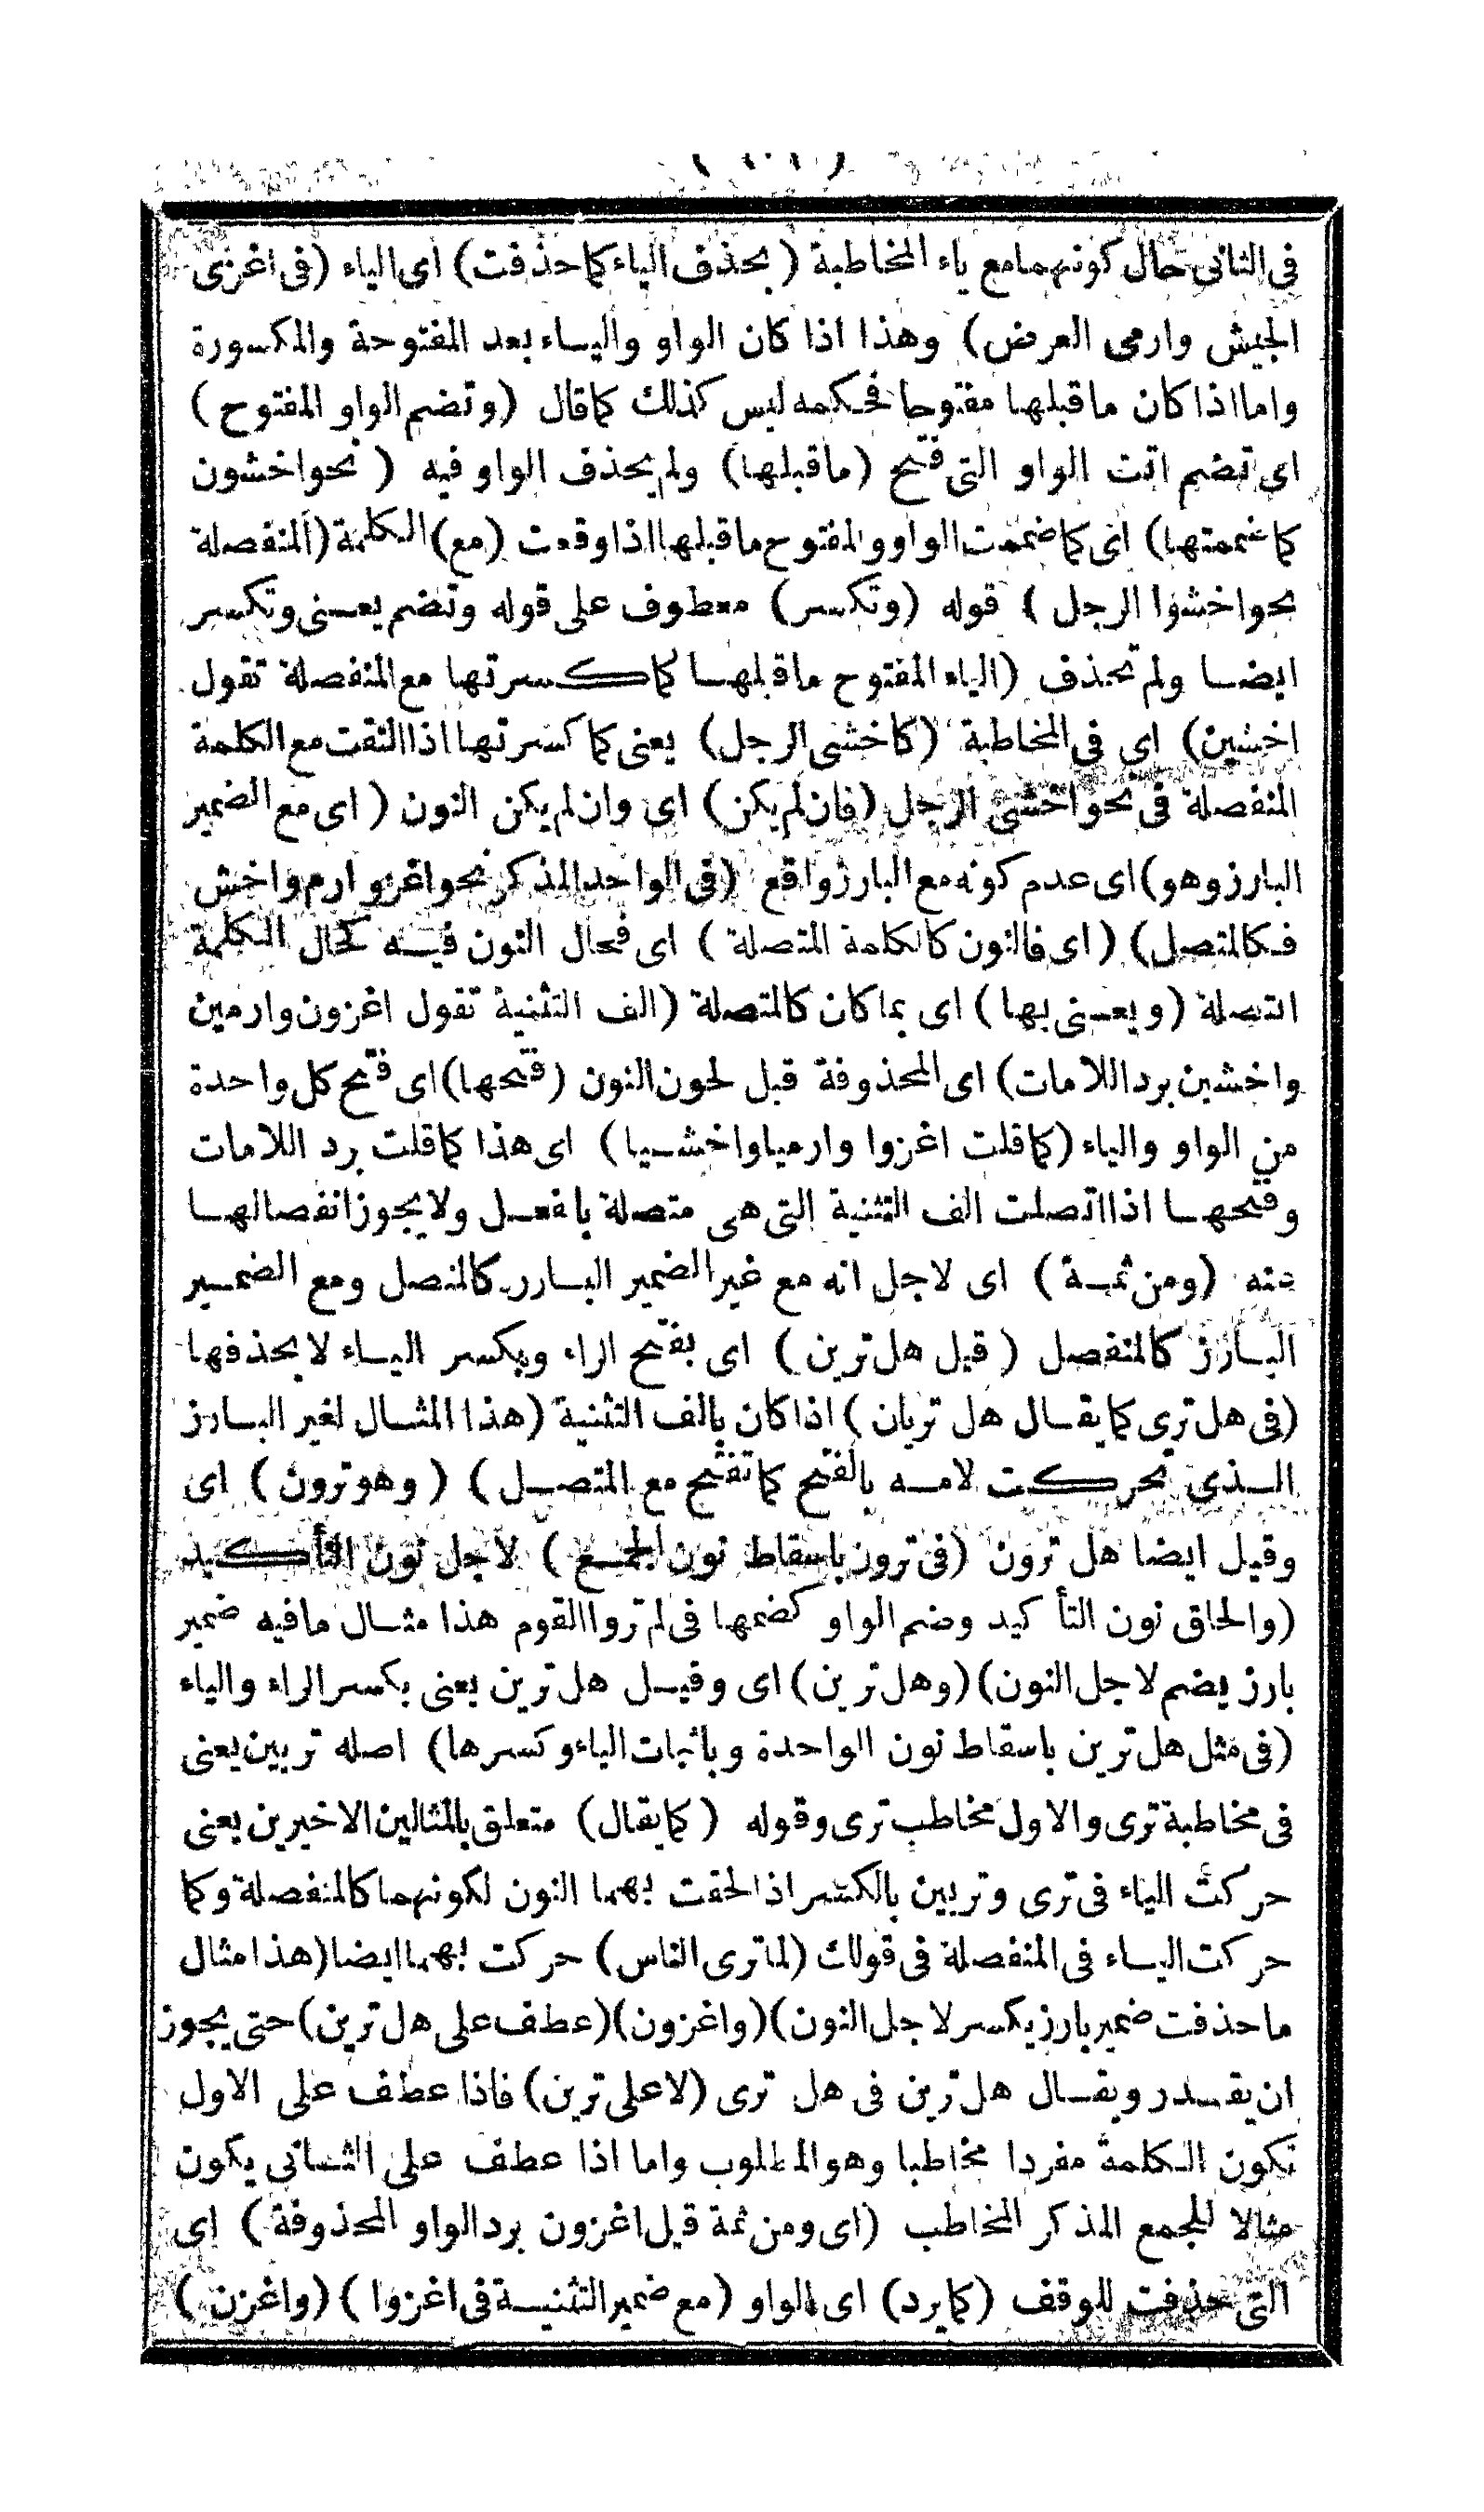 فى الثانى حال كونهما مع ياء المخاطبة ( بحذف الياء كما حذفت ) اى الياء ( فى اغزى
الجيش وارمى العرض ) وهذا اذا كان الواو والياء بعد المفتوحة والمكسورة
واما اذا كان ما قبلها مفتوحا فحكمه ليس كذلك كما قال ( وتضم الواو المفتوح )
اى تضم انت الواو التى فتح ( ما قبلها ) ولم يحذف الواو فيه ( نحو اخشون
كما ضممتها ) اى كما ضممت الواو والمفتوح ما قبلها اذا وقعت ( مع ) الكلمة ( المنفصلة
نحو اخشوا الرجل ) قوله ( وتكسر ) معطوف على قوله وتضم يعنى وتكسر
ايضا ولم تحذف ( الياء المفتوح ما قبلها كما كسرتها مع المنفصلة تقول
اخشين ) اى فى المخاطبة ( كاخشى الرجل ) يعنى كما كسرتها اذا التقت مع الكلمة
المنفصلة فى نحو اخشى الرجل ( فان لم يكن ) اى وان لم يكن النون ( اى مع الضمير
البارز وهو ) اى عدم كونه مع البارز واقع ( فى الواحد المذكر نحو اغزو ارم واخش
فكالمتصل ) ( اى فالنون كالكلمة المتصلة ) اى فحال النون فيه كحال الكلمة
التصلة ( ويعنى بها ) اى بما كان كالمتصلة ( الف التثنية تقول اغزون وارمين
واخشين برد اللامات ) اى المحذوفة قبل لحون النون ( فتحها ) اى فتح كل واحدة
من الواو والياء ( كما قلت اغزوا وارميا واخشيا ) اى هذا كما قلت برد اللامات
وفتحها اذا اتصلت الف التثنية التى هى متصلة بالفعل ولا يجوز انفصالها
عنه ( ومن ثمة ) اى لاجل انه مع غير الضمير البارز كالمتصل ومع الضمير
البارز كالمنفصل ( قيل هل ترين ) اى بفتح الراء وبكسر الياء لا بحذفها
( فى هل ترى كما يقال هل تريان ) اذا كان بالف التثنية ( هذا المثال لغير البارز
الذى تحركت لامه بالفتح كما تفتح مع المتصل ) ( وهو ترون ) اى
وقيل ايضا هل ترون ( فى ترون باسقاط نون الجمع ) لاجل نون التأكيد
( والحاق نون التأكيد وضم الواو كضمها فى لم تروا القوم هذا مثال ما فيه ضمير
بارز يضم لاجل النون ) ( وهل ترين ) اى وقيل هل ترين يعنى بكسر الراء والياء
( فى مثل هل ترين باسقاط نون الواحدة وباثبات الياء وكسرها ) اصله تريين يعنى
فى مخاطبة ترى والاول مخاطب ترى وقوله ( كما يقال ) متعلق بالمثالين الاخيرين يعنى
حركت الياء فى ترى وتريين بالكسر اذ الحقت بهما النون لكونهما كالمنفصلة وكما
حركت الياء فى المنفصلة فى قولك ( لما ترى الناس ) حركت بهما ايضا ( هذا مثال
ما حذفت ضمير بارز يكسر لاجل النون ) ( واغزون ) ( عطف على هل ترين ) حتى يجوز
ان يقدر ويقال هل ترين فى هل ترى ( لا على ترين ) فاذا عطف على الاول
تكون الكلمة مفردا مخاطبا وهو المطلوب واما اذا عطف على الثانى يكون
مثالا للجمع المذكر المخاطب ( اى ومن ثمة قيل اغزون برد الواو المحذوفة ) اى
التى حذفت للوقف ( كما يرد ) اى الواو ( مع ضمير التثنية فى اغزوا ) ( واغزن )